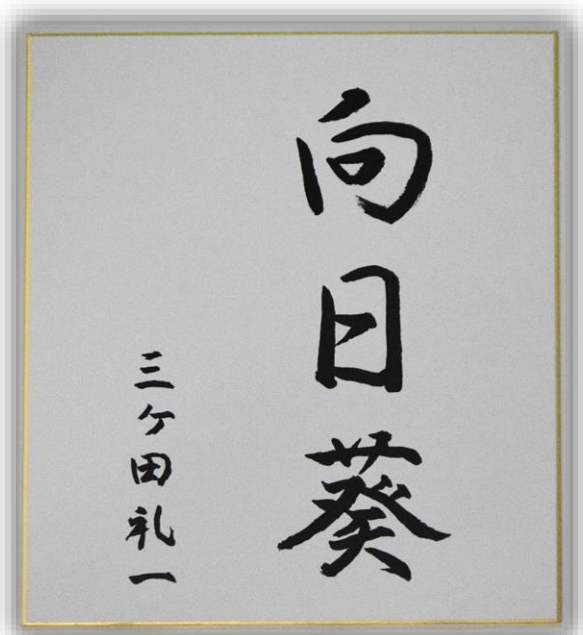 向日葵
三ケ田礼一